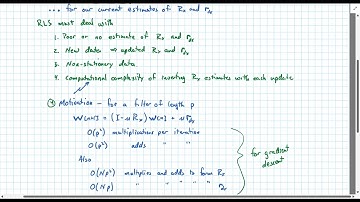 ... for our current estimates of Rx and rdx
RLS must deal with
1. Poor or no estimate of Rx and rdx
2. New data → updated Rx and rdx
3. Non-stationary data
4. Computational complexity of inverting Rx estimates with each update
④ Motivation - for a filter of length p
W(n+1) = (I-μRx) W(n) + μ rdx
O(p²) multiplications per iteration
O(p²) adds " "
Also
O(Np²) multiplies and adds to form Rx
O(Np) " " " " " rdx
for gradient descent